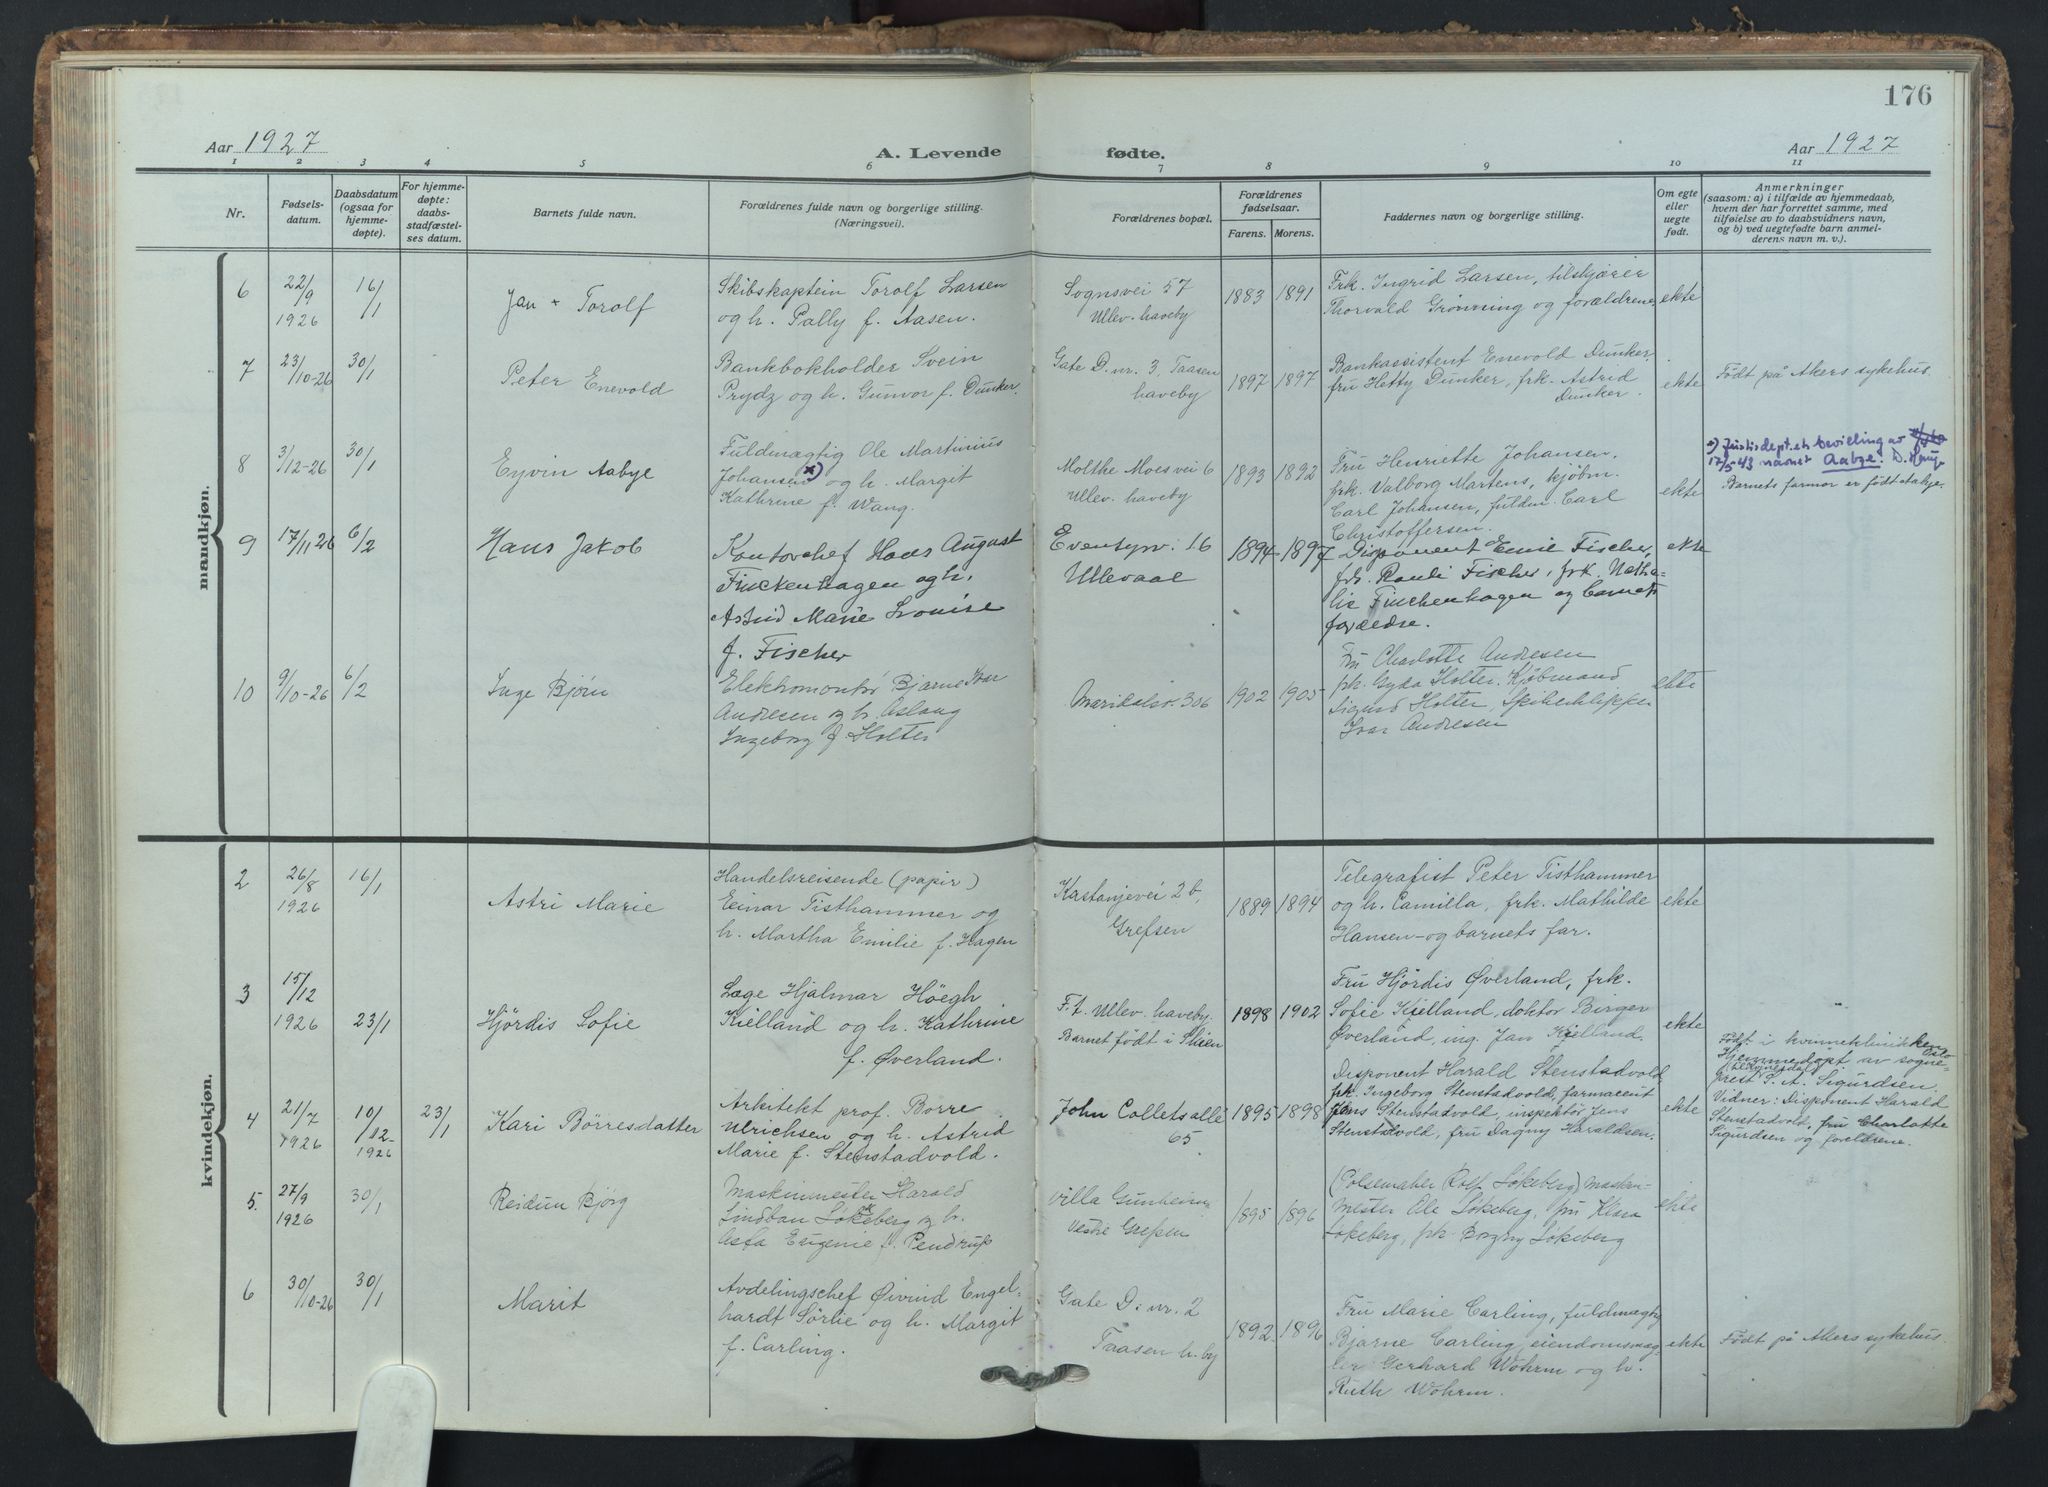 176
Aar 1927
A. Levende fødte.
Aar 1927
1 2 3 4 5 6 7 8 9 10 11
Nr.
Fødsels-
datum.
Daabsdatum
(ogsaa for
hjemme-
døpte).
For hjemme-
døpte:
daabs-
stadfæstel-
ses datum.
Barnets fulde navn.
Forældrenes fulde navn og borgerlige stilling.
(Næringsvei).
Forældrenes bopæl.
Forældrenes
fødselsaar.
Farens. Morens.
Faddernes navn og borgerlige stilling.
Om egte
eller
uegte
født.
Anmerkninger
(saasom: a) i tilfælde av hjemmedaab,
hvem der har forrettet samme, med
tilføielse av to daabsvidners navn,
og b) ved uegtefødte barn anmel-
derens navn m. v.).
mandkjøn.
6
22/9
1926
16/1
Jan + Torolf
Skibskaptein Torolf Larsen
og h. Pally f. Aasen.
Sognsvei 57
Ullev. haveby
1883 1891
Frk. Ingrid Larsen, tilskjærer
Thorvald Grönning og forældrene
ekte
7
23/10-26
30/1
Peter Enevold
Bankbokholder Svein
Prydz og h. Gunvor f. Dunker.
Gate D. nr. 3, Taasen
haveby
1897 1897
Bankassistent Enevold Dunker
fru Hetty Dunker, frk. Astrid
Dunker.
ekte
Født på Akers sykehus.
8
3/12-26
30/1
Eyvin Aabye
Fuldmægtig Ole Martinius
Johansen x) og h. Margit
Kathrine f. Wang.
Molthe Moesvei 6
Ullev. haveby
1893 1892
Fru Henriette Johansen,
frk. Valborg Martens, kjøbm.
Carl Johansen, fuldm. Carl
Christoffersen.
ekte
x) Justisdept.ets bevilling av
17/5 43 navnet Aabye. D. Hauge
Barnets farmor er født Aabye.
9
17/11 26
6/2
Hans Jakob
Kontorchef Hans August
Finckenhagen og h.
Astrid Marie Louise
f. Fischer
Eventyrv. 16
Ullevaal
1894 1897
Disponent Emil Fischer,
frk. Pauli Fischer, frk. Natha-
lie Finckenhagen og barnets
forældre.
ekte
10
9/10-26
6/2
Inge Bjørn
Elektromontør Bjarne Ivar
Andresen og h. Aslaug
Ingeborg f. Holter
Maridalsv. 306
1902 1905
Fru Charlotte Andresen
frk. Gyda Holter. Kjøbmand
Sigurd Holter,
Ivar Andresen
ekte
kvindekjøn.
2
26/8
1926
16/1
Astri Marie
Handelsreisende (papir)
Einar Tisthammer og
h. Martha Emilie f. Hagen
Kastanjevei 2b,
Grefsen
1889 1894
Telegrafist Peter Tisthammer
og h. Camilla, frk. Mathilde
Hansen - og barnets far.
ekte
3
15/12
1926
23/1
Hjördis Sofie
Læge Hjalmar Höegh
Kielland og h. Kathrine
f. Øverland.
F.t. Ullev. haveby.
Barnet født i Skien
1898 1902
Fru Hjördis Øverland, frk.
Sofie Kielland, doktor Birger
Øverland, ing. Jan Kielland.
ekte
4
21/7
1926
10/12-
1926
23/1
Kari Börresdatter
Arkitekt prof. Börre
Ulrichsen og h. Astrid
Marie f. Stenstadvold.
John Collets allé
65
1895 1898
Disponent Harald Stenstadvold,
frk. Ingeborg Stenstadvold, farmaceut
Jens Stenstadvold, inspektör Jens
Stenstadvold, fru Dagny Haraldsen.
ekte
Født i kvinneklinikken, Oslo
Hjemmedøpt av sogne-
prest S. A. Sigurdsen.
Vidner: Disponent Harald
Stenstadvold, fru Charlotte
Sigurdsen og foreldrene.
5.
27/9
1926
30/1
Reidun Bjørg
Maskinmester Harald
Lindbau Løkeberg og h.
Asta Eugenie f. Pendrup
Villa Gunheim
Vestre Grefsen
1895 1896
(Pølsemaker Rolf Løkeberg) maskin-
mester Ole Løkeberg, fru Klara
Løkeberg, frk. Borgny Løkeberg
ekte
6
30/10-26
30/1
Marit
Avdelingschef Øivind Engel-
hardt Sörlie og h. Margit
f. Carling.
Gate D. nr. 2
Taasen h.by
1892 1896
Fru Marie Carling, fuldmægtig
Bjarne Carling, eiendomsmæg-
ler Gerhard Wöhrm og h.
Ruth Wöhrm.
ekte
Født på Akers sykehus.